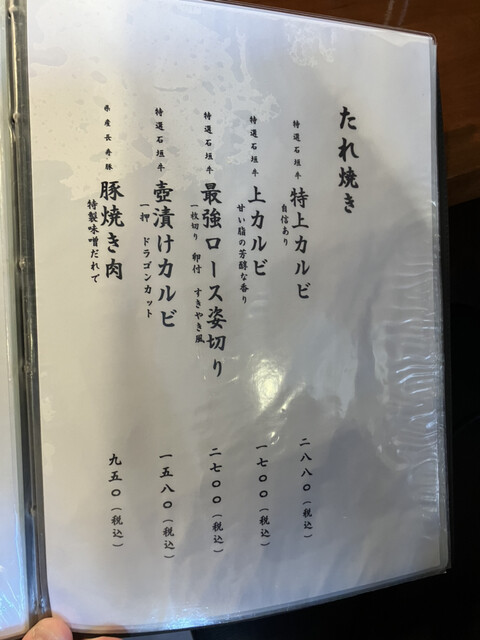 たれ焼き
特選石垣牛 特上カルビ 二八八〇(税込)
自信あり
特選石垣牛 上カルビ 一七〇〇(税込)
甘い脂の芳醇な香り
特選石垣牛 最強ロース姿切り 二七〇〇(税込)
一枚切り 卵付 すきやき風
特選石垣牛 壺漬けカルビ 一五八〇(税込)
一押 ドラゴンカット
県産長寿豚 豚焼き肉 九五〇(税込)
特製味噌だれで